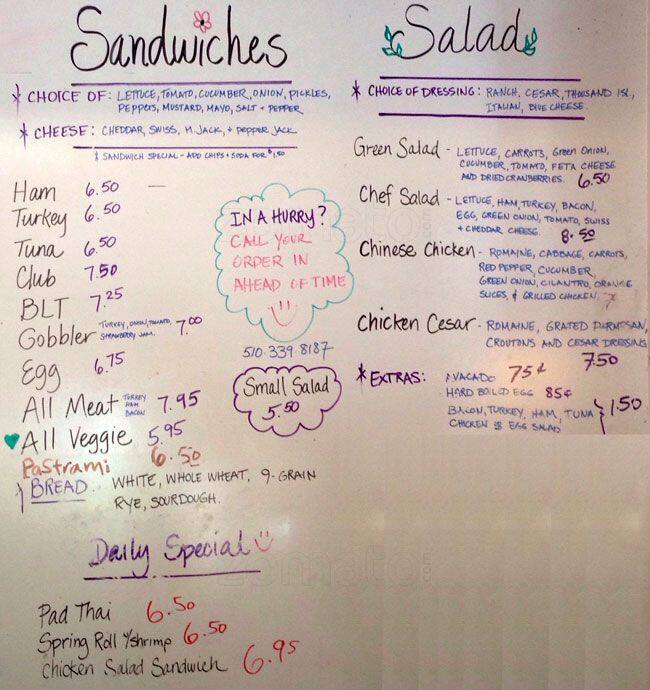 Sandwiches
* CHOICE OF: LETTUCE, TOMATO, CUCUMBER, ONION, PICKLES,
PEPPERS, MUSTARD, MAYO, SALT + PEPPER
* CHEESE: CHEDDAR, SWISS, M. JACK, + PEPPER JACK
$ SANDWICH SPECIAL - ADD CHIPS + SODA FOR $1.50
Ham 6.50
Turkey 6.50
Tuna 6.50
Club 7.50
BLT 7.25
Gobbler TURKEY, ONION, TOMATO, 7.00
STRAWBERRY JAM.
Egg 6.75
All Meat TURKEY 7.95
HAM
BACON
All Veggie 5.95
Pastrami 6.50
BREAD WHITE, WHOLE WHEAT, 9-GRAIN
RYE, SOURDOUGH.
IN A HURRY?
CALL YOUR
ORDER IN
AHEAD OF TIME
510.339.8187
Small Salad
5.50
Salad
* CHOICE OF DRESSING: RANCH, CESAR, THOUSAND ISL,
ITALIAN, BLUE CHEESE.
Green Salad - LETTUCE, CARROTS, GREEN ONION,
CUCUMBER, TOMATO, FETA CHEESE
AND DRIED CRANBERRIES. 6.50
Chef Salad - LETTUCE, HAM, TURKEY, BACON,
EGG, GREEN ONION, TOMATO, SWISS
+ CHEDDAR CHEESE. 8.50
Chinese Chicken - ROMAINE, CABBAGE, CARROTS,
RED PEPPER, CUCUMBER,
GREEN ONION, CILANTRO, ORANGE
SLICES, & GRILLED CHICKEN.
Chicken Cesar - ROMAINE, GRATED PARMESAN,
CROUTONS AND CESAR DRESSING
7.50
* EXTRAS: AVACADO 75¢
HARD BOILED EGG 85¢
BACON, TURKEY, HAM, TUNA } 1.50
CHICKEN & EGG SALAD
Daily Special
Pad Thai 6.50
Spring Roll w/shrimp 6.50
Chicken Salad Sandwich 6.95